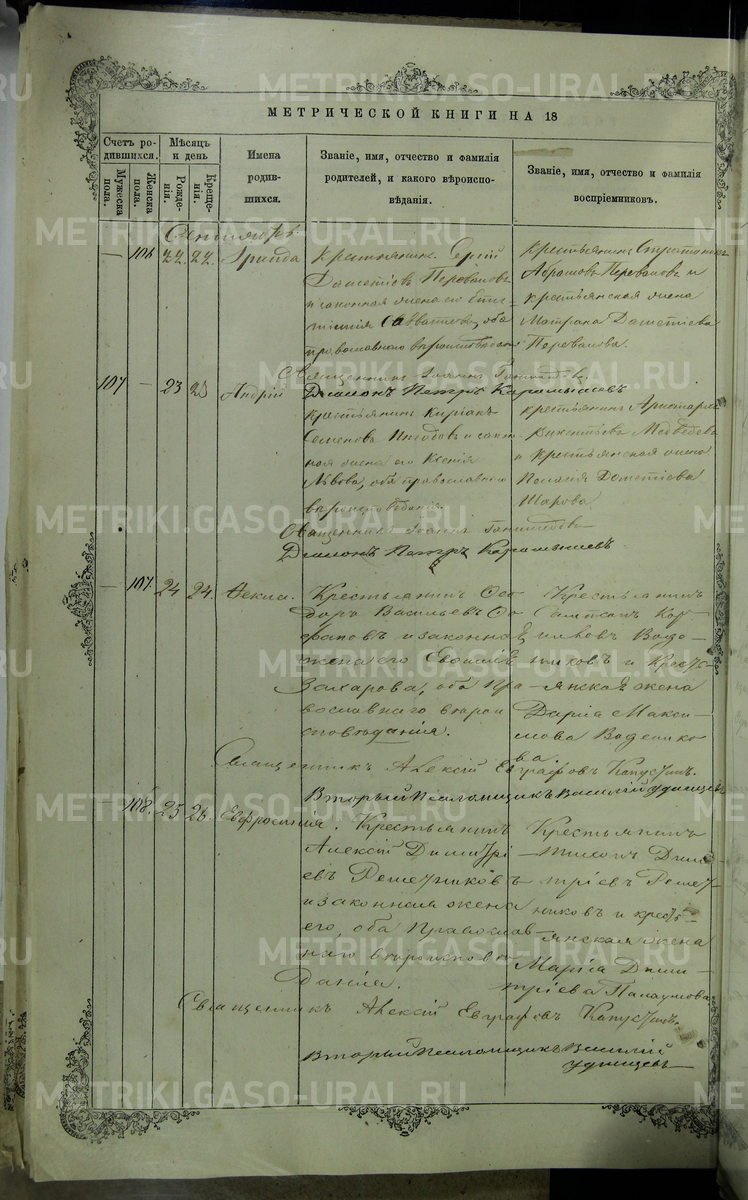 METRIKI.GASO-URAL.RU
МЕТРИЧЕСКОЙ КНИГИ НА 18
Счетъ ро-
дившихся.
Мужеска
пола.
Женска
пола.
Мѣсяцъ
и день
Рожде-
нія.
Креще-
нія.
Имена
родив-
шихся.
Званіе, имя, отчество и фамилія
родителей, и какого вѣроиспо-
вѣданія.
Званіе, имя, отчество и фамилія
воспріемниковъ.
Сентябрь
— 106 22. 22. Ираида
Крестьянинъ Сергій
Дометіевъ Переваловъ
и законная жена его
Савватіева, оба
православнаго вѣроисповѣданія
Крестьянинъ
Абрамовъ Переваловъ и
крестьянская жена
Матрона Дометіева
Перевалова.
Священникъ Іоаннъ
Діаконъ Петръ Карамышевъ
107 — 23 23 Андрій
Крестьянинъ Киріакъ
Семеновъ и закон-
ная жена его Ксенія
Львова, оба православнаго
вѣроисповѣданія.
крестьянинъ Аристархъ
Викентьевъ Медведевъ
и крестьянская жена
Пелагія Дометіева
Шарова
Священникъ Іоаннъ
Діаконъ Петръ Карамышевъ
— 107. 24 24. Ѳекла.
Крестьянинъ Ѳео-
доръ Васильевъ
и законная
жена его
Захарова, оба пра-
вославнаго вѣрои
сповѣданія.
Крестьянинъ
Сампсонъ Кор-
ниловъ Воде-
никовъ и Кресть-
янская жена
Дарія Макси-
мова Воденико-
ва.
Священникъ Алексій Евграфовъ Капустинъ.
Вторый Псаломщикъ Василій Удинцевъ
— 108. 25 26. Евфросинія.
Крестьянинъ
Алексій Димитрі-
евъ Решетниковъ
и законная жена
его, оба Православ-
наго вѣроисповѣ-
данія.
Крестьянинъ
Тихонъ Дими-
тріевъ Решет-
никовъ и кресть-
янская жена
Марія Дими-
тріева
Священникъ Алексій Евграфовъ Капустинъ.
Вторый Псаломщикъ Василій
Удинцевъ